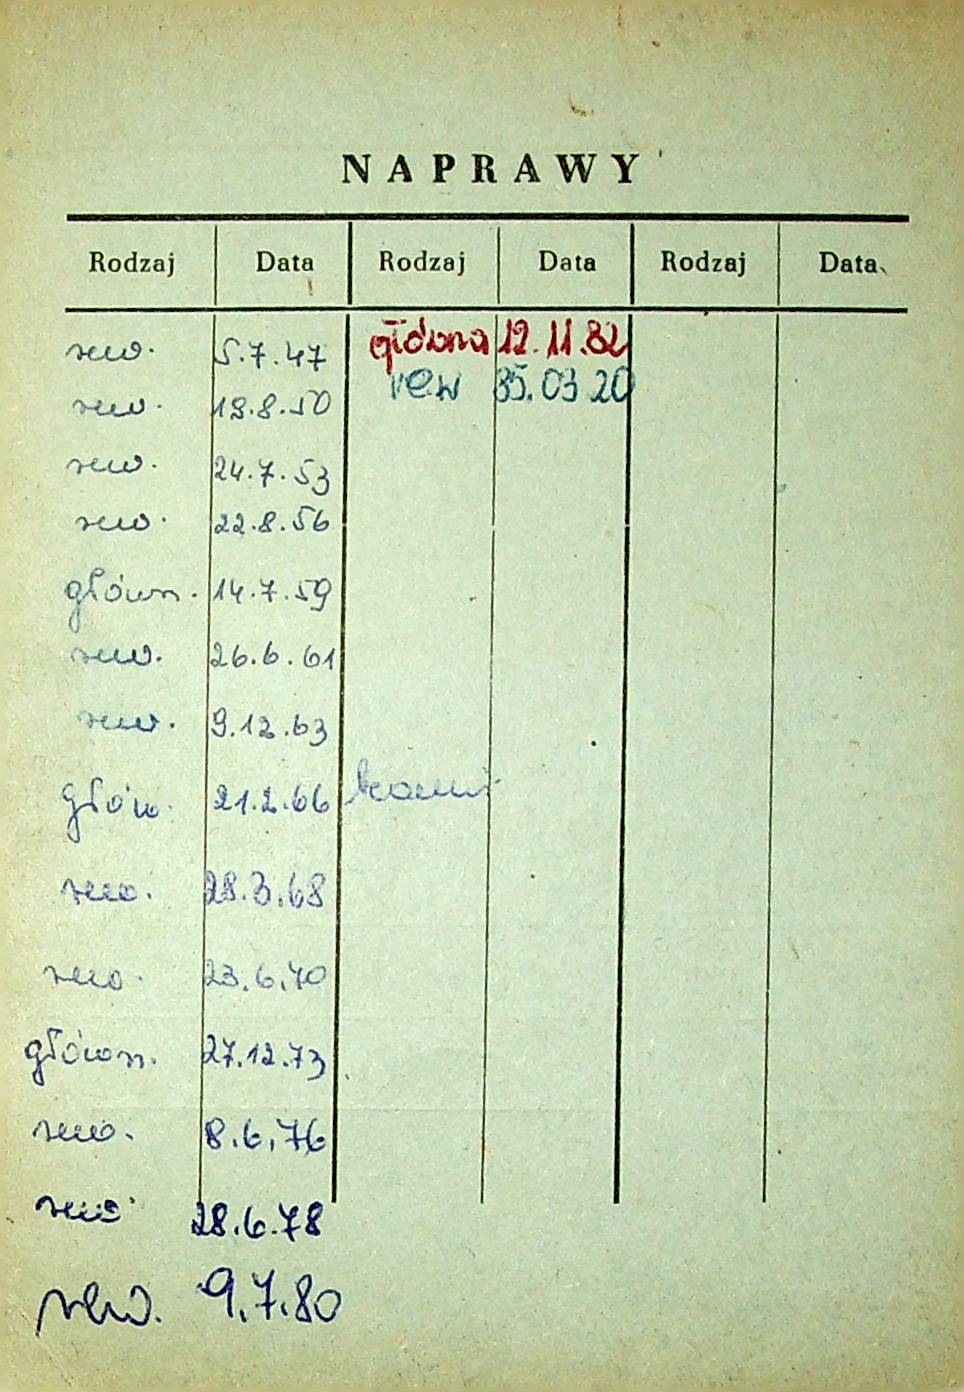 NAPRAWY
Rodzaj Data Rodzaj Data Rodzaj Data
rew. 5.7.47 główna 12.11.82
rew 85.03.20
rew. 18.8.50
rew. 24.7.53
rew. 22.8.56
główn. 14.7.59
rew. 26.6.61
rew. 9.12.63
głów. 21.2.66
rew. 28.3.68
rew. 23.6.70
główn. 27.12.73
rew. 8.6.76
rew. 28.6.78
rew. 9.7.80